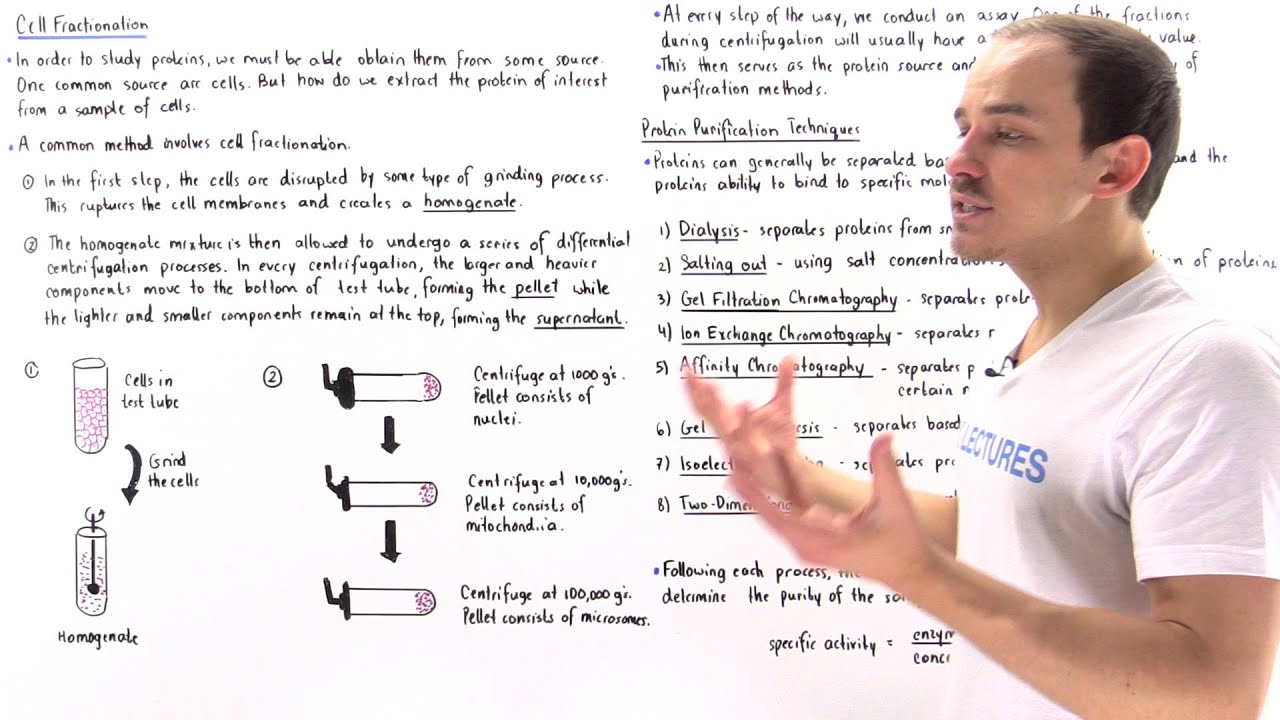 Cell Fractionation
• In order to study proteins, we must be able obtain them from some source.
One common source are cells. But how do we extract the protein of interest
from a sample of cells.
• A common method involves cell fractionation.
① In the first step, the cells are disrupted by some type of grinding process.
This ruptures the cell membranes and creates a homogenate.
② The homogenate mixture is then allowed to undergo a series of differential
centrifugation processes. In every centrifugation, the larger and heavier
components move to the bottom of test tube, forming the pellet while
the lighter and smaller components remain at the top, forming the supernatant.
①
Cells in
test tube
Grind
the cells
Homogenate
②
Centrifuge at 1000 g's.
Pellet consists of
nuclei.
Centrifuge at 10,000g's.
Pellet consists of
mitochondria.
Centrifuge at 100,000 g's.
Pellet consists of microsomes.
• At every step of the way, we conduct an assay. One of the fractions
during centrifugation will usually have a value.
• This then serves as the protein source and of
purification methods.
Protein Purification Techniques
• Proteins can generally be separated and the
proteins ability to bind to specific
1) Dialysis - separates proteins from
2) Salting out - using salt of proteins
3) Gel Filtration Chromatography - separates
4) Ion Exchange Chromatography - separates
5) Affinity Chromatography - separates
certain
6) Gel - separates based
7) - separates
8)
• Following each process,
determine the purity of the
specific activity =
LECTURES